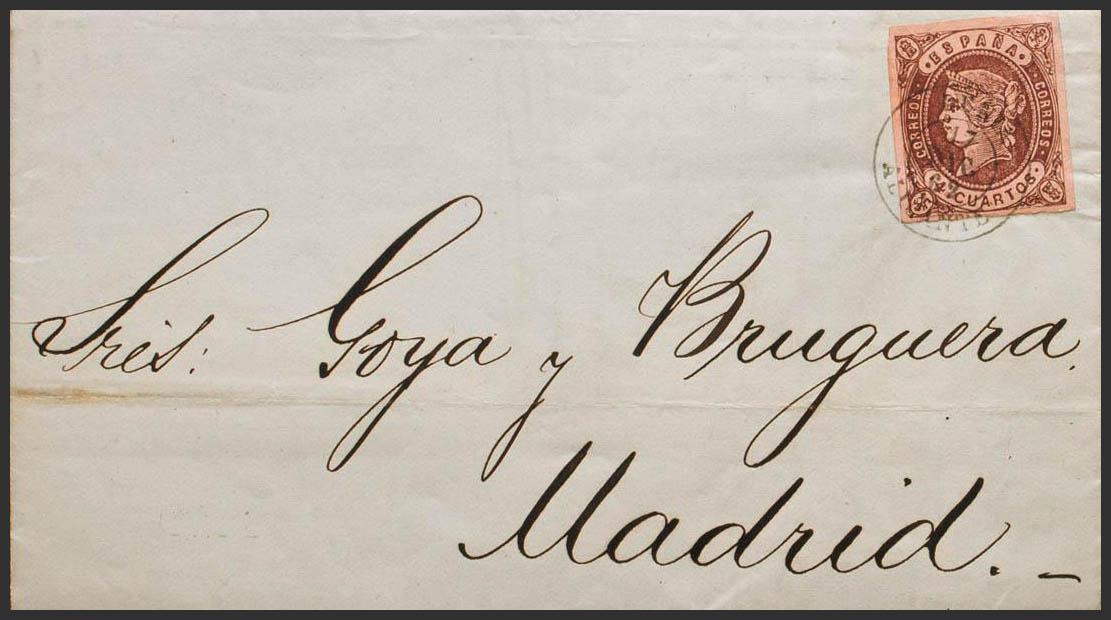 ESPAÑA
CORREOS
CORREOS
4 CUARTOS
Sres. Goya y Bruguera.
Madrid.-